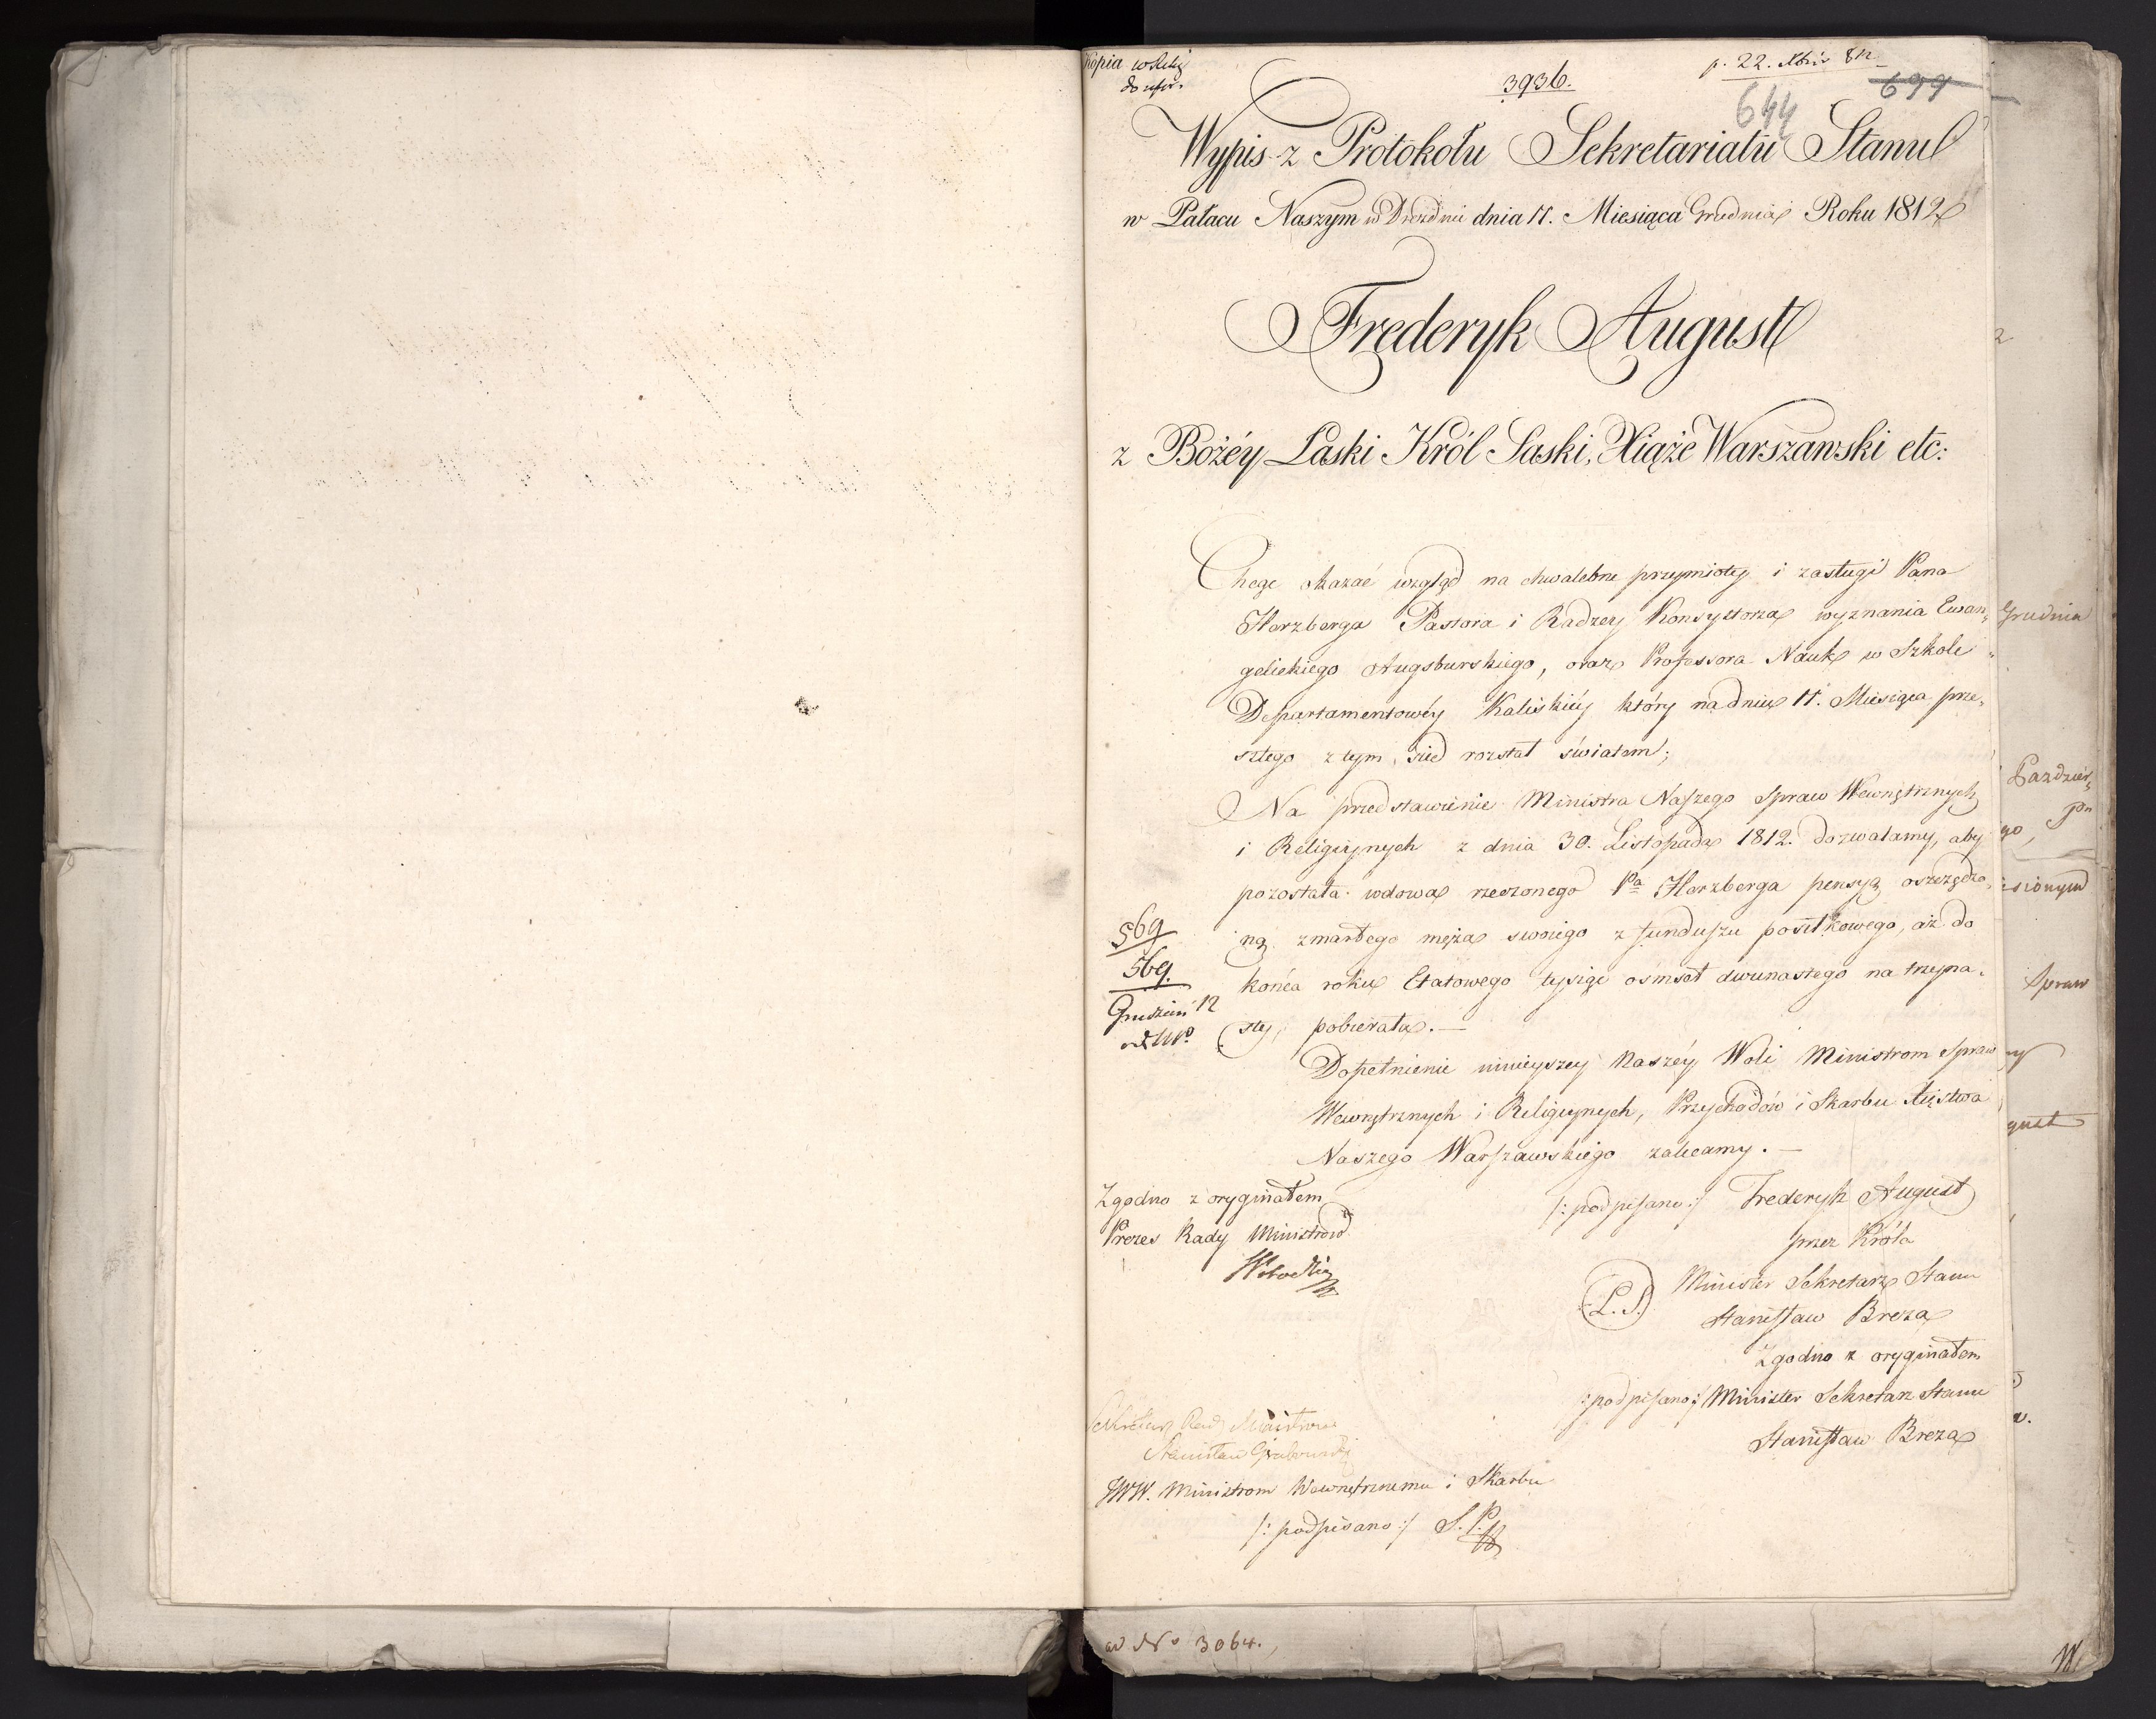 Kopia
3936.
p. 22. Xbris 812
699
644
Wypis z Protokołu Sekretariatu Stanu
w Pałacu Naszym w Dreznie dnia 11. Miesiąca Grudnia Roku 1812
Frederyk August
z Bożéy Łaski Król Saski, Xiąże Warszawski etc:
Chcąc okazać wzgląd na chwalebne przymioty i zasługi Pana
Herzberga Pastora i Radzcy Konsystorza wyznania Ewan„
gelickiego Augsburskiego, oraz Professora Nauk w Szkole
Departamentowéy Kaliskiéy który na dniu 11. Miesiąca prze„
szłego z tym się rozstał światem;
Na przedstawienie Ministra Naszego Spraw Wewnętrznych
i Religiynych z dnia 30. Listopada 1812. dozwalamy, aby
pozostała wdowa rzeczonego Pa Herzberga pensyą oszczędzo„
ną zmarłego męża swoiego z funduszu posiłkowego, aż do
końca roku Etatowego tysiąc ośmset dwunastego na trzyna„
sty, pobierała.—
569
569.
Grudzień 12
Dopełnienie ninieyszey Naszéy Woli Ministrom Spraw
Wewnętrznych i Religiynych, Przychodów i Skarbu Xięstwa
Naszego Warszawskiego zalecamy.—
Zgodno z oryginałem
Prezes Rady Ministrów
/: podpisano :/ Frederyk August
przez Króla
(L. S.) Minister Sekretarz Stanu
Stanisław Breza
Zgodno z oryginałem
/: podpisano :/ Minister Sekretarz Stanu
Stanisław Breza
Sekretarz Rady Ministrów
Stanisław Grabowski
JWW. Ministrom Wewnętrznemu i Skarbu
/: podpisano :/ S. P.
ad No 3064.
Grudnia
Pazdzier„
go,
Spraw
gust